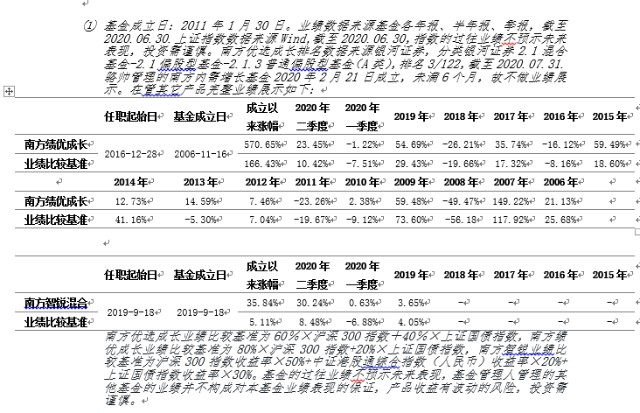 ① 基金成立日：2011 年 1 月 30 日。业绩数据来源基金各年报、半年报、季报，截至
2020.06.30.上证指数数据来源 Wind,截至 2020.06.30,指数的过往业绩不预示未来
表现，投资需谨慎。南方优选成长排名数据来源银河证券，分类银河证券 2.1 混合
基金-2.1 偏股型基金-2.1.3 普通偏股型基金(A 类),排名 3/122,截至 2020.07.31.
骆帅管理的南方内需增长基金 2020 年 2 月 21 日成立，未满 6 个月，故不做业绩展
示。在管其它产品完整业绩展示如下：
任职起始日 基金成立日 成立以来涨幅 2020 年二季度 2020 年一季度 2019 年 2018 年 2017 年 2016 年 2015 年
南方绩优成长 2016-12-28 2006-11-16 570.65% 23.45% -1.22% 54.69% -26.21% 35.74% -16.12% 59.49%
业绩比较基准 166.43% 10.42% -7.51% 29.43% -19.66% 17.32% -8.16% 18.60%
2014 年 2013 年 2012 年 2011 年 2010 年 2009 年 2008 年 2007 年 2006 年
南方绩优成长 12.73% 14.59% 7.46% -23.26% 2.38% 59.48% -49.47% 149.22% 21.13%
业绩比较基准 41.16% -5.30% 7.04% -19.67% -9.12% 73.60% -56.18 117.92% 25.68%
任职起始日 基金成立日 成立以来涨幅 2020 年二季度 2020 年一季度 2019 年 2018 年 2017 年 2016 年 2015 年
南方智锐混合 2019-9-18 2019-9-18 35.84% 30.24% 0.63% 3.65% - - - -
业绩比较基准 5.11% 8.48% -6.88% 4.05% - - - -
南方优选成长业绩比较基准为 60%×沪深 300 指数＋40%×上证国债指数，南方绩
优成长业绩比较基准为 80%×沪深 300 指数+20%×上证国债指数，南方智锐业绩比
较基准为沪深 300 指数收益率×50%+中证港股通综合指数（人民币）收益率×20%+
上证国债指数收益率×30%。基金的过往业绩不预示未来表现，基金管理人管理的其
他基金的业绩并不构成对本基金业绩表现的保证，产品收益有波动的风险，投资需
谨慎。